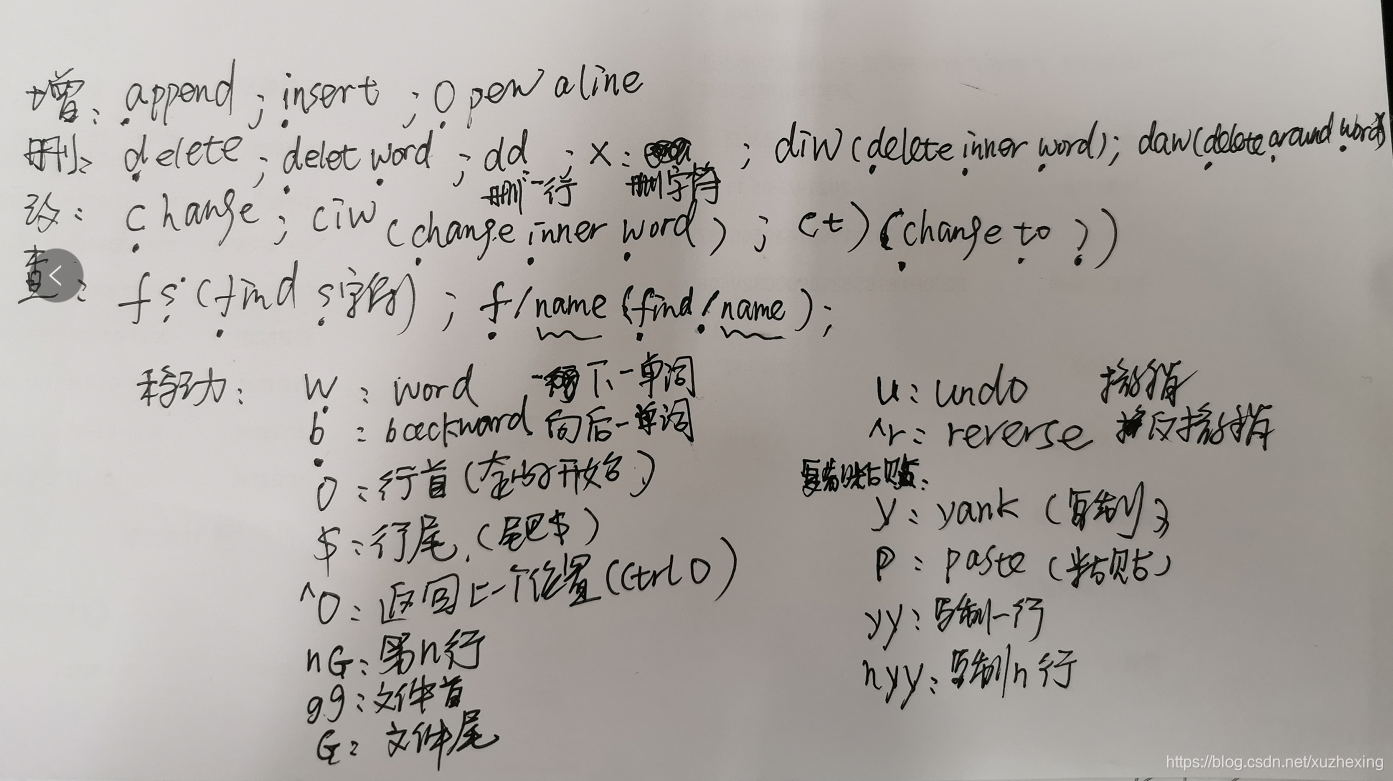 增：append；insert；Open a line
删：delete；delet word；dd；x：；diw(delete inner word)；daw(delete around word)
删一行 删字符
改：change；ciw(change inner word)；ct)(change to ))
查：fs(find s字符)；f/name(find/name)；
移动：w：word 下一单词
b：backward 向后一单词
0：行首(在的开始0)
$：行尾(尾巴$)
^O：返回上一个位置(Ctrl O)
nG：第n行
gg：文件首
G：文件尾
u：undo 撤销
^r：reverse 反撤销
复制粘贴：
y：yank(复制)
p：paste(粘贴)
yy：复制一行
nyy：复制n行
https://blog.csdn.net/xuzhexing